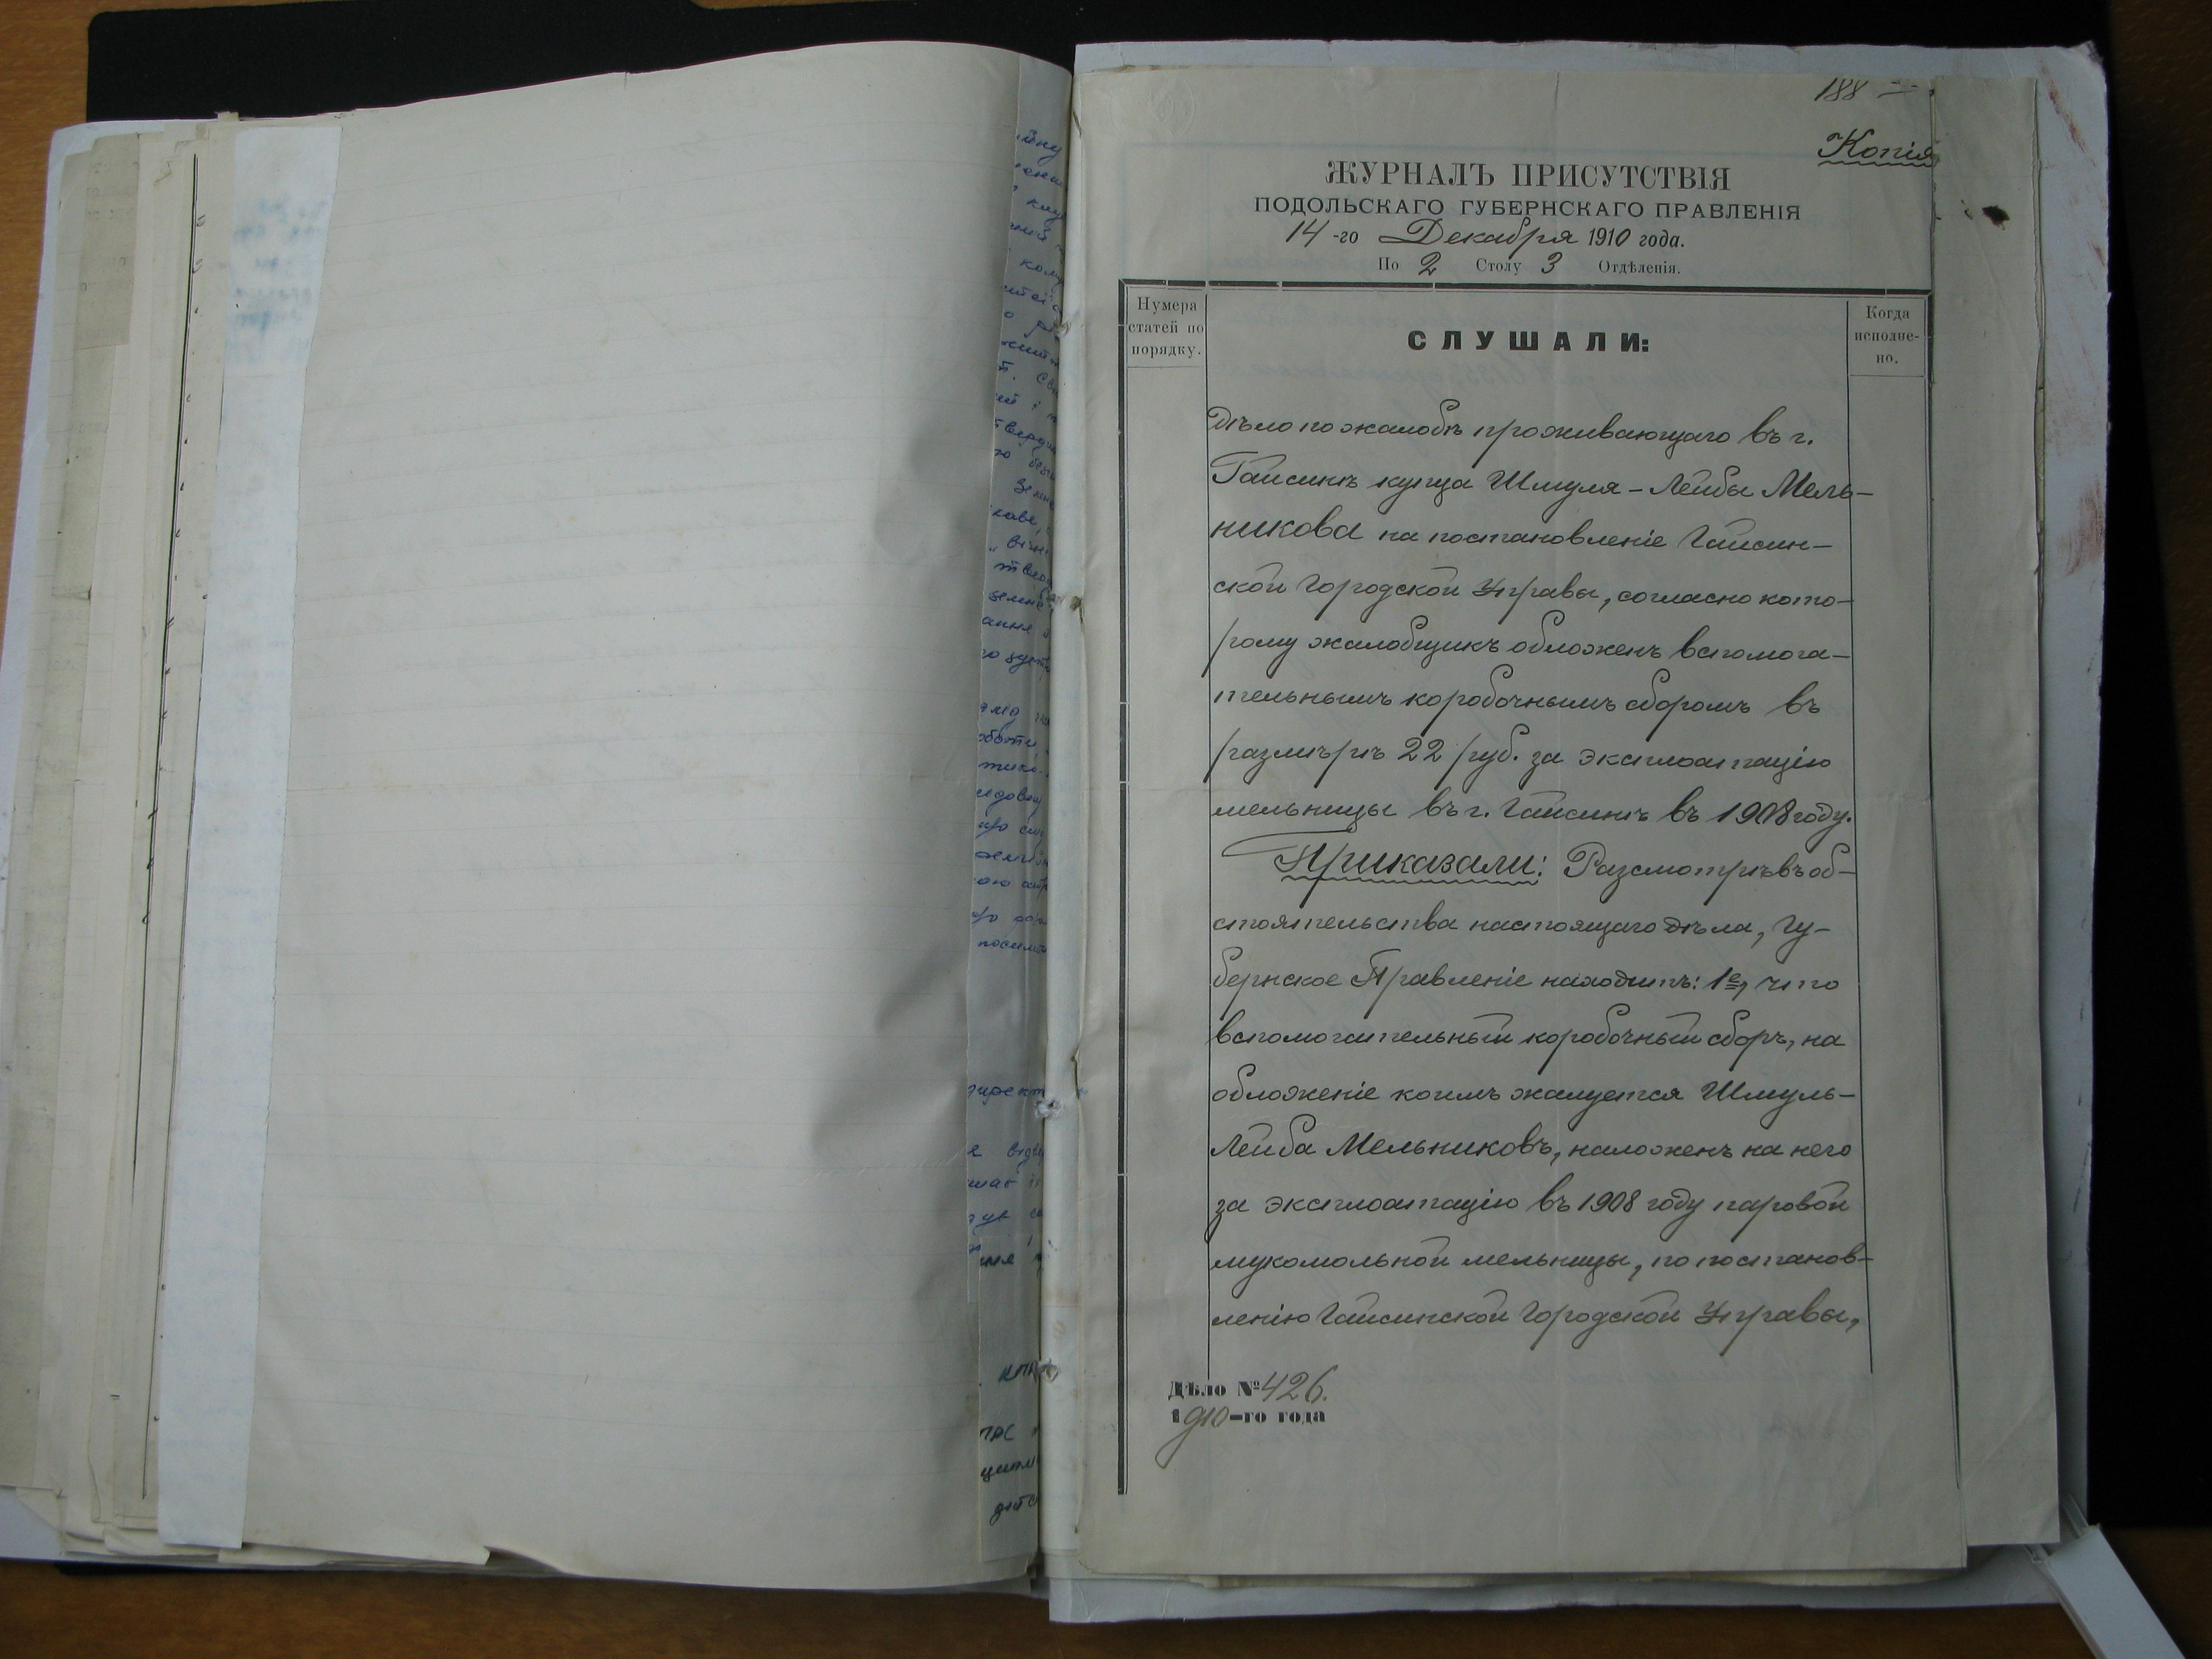 188
Копія
ЖУРНАЛЪ ПРИСУТСТВІЯ
ПОДОЛЬСКАГО ГУБЕРНСКАГО ПРАВЛЕНІЯ
14-го Декабря 1910 года.
По 2 Столу 3 Отдѣленія.
Нумера
статей по
порядку.
СЛУШАЛИ:
Когда
исполне-
но.
Дѣло по жалобѣ проживающаго въ г.
Гайсинѣ купца Шмуля-Лейбы Мель-
никова на постановленіе Гайсин-
ской Городской Управы, согласно кото-
рому жалобщикъ обложенъ вспомога-
тельнымъ коробочнымъ сборомъ въ
размѣрѣ 22 руб. за эксплоатацію
мельницы въ г. Гайсинѣ въ 1908 году.
Приказали: Разсмотрѣвъ об-
стоятельства настоящаго дѣла, Гу-
бернское Правленіе находитъ: 1е, что
вспомогательный коробочный сборъ, на
обложеніе коимъ жалуется Шмуль-
Лейба Мельниковъ, наложенъ на него
за эксплоатацію въ 1908 году паровой
мукомольной мельницы, по постанов-
ленію Гайсинской Городской Управы,
Дѣло № 426.
1910-го года